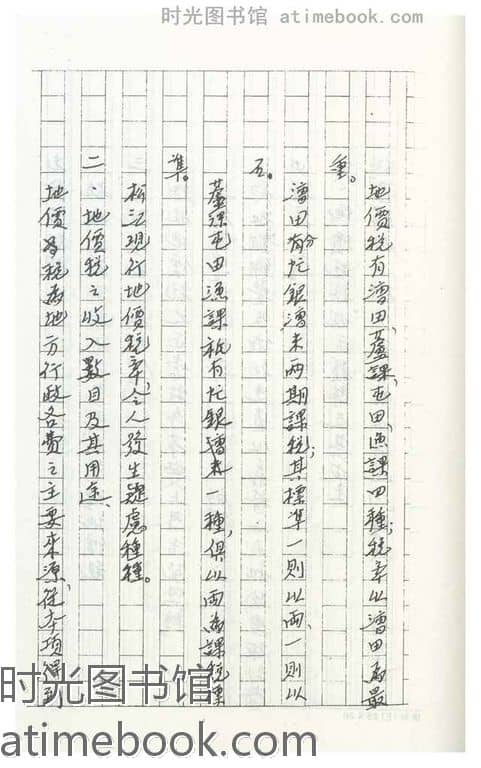 时光图书馆 atimebook.com
地價稅有漕田、蘆課、屯田、漁課四種；稅率以漕田為最
重。
漕田分有忙銀漕米两期課稅，其標準一則以两、一則以
石。
蘆課屯田漁課祇有忙銀一種，俱以两為課稅標
準。
松江現行地價稅率，令人發生疑慮種種。
二、地價稅之收入數目及其用途、
地價稅為地方行政各費之主要來源，從本項得到
时光图书馆
atimebook.com